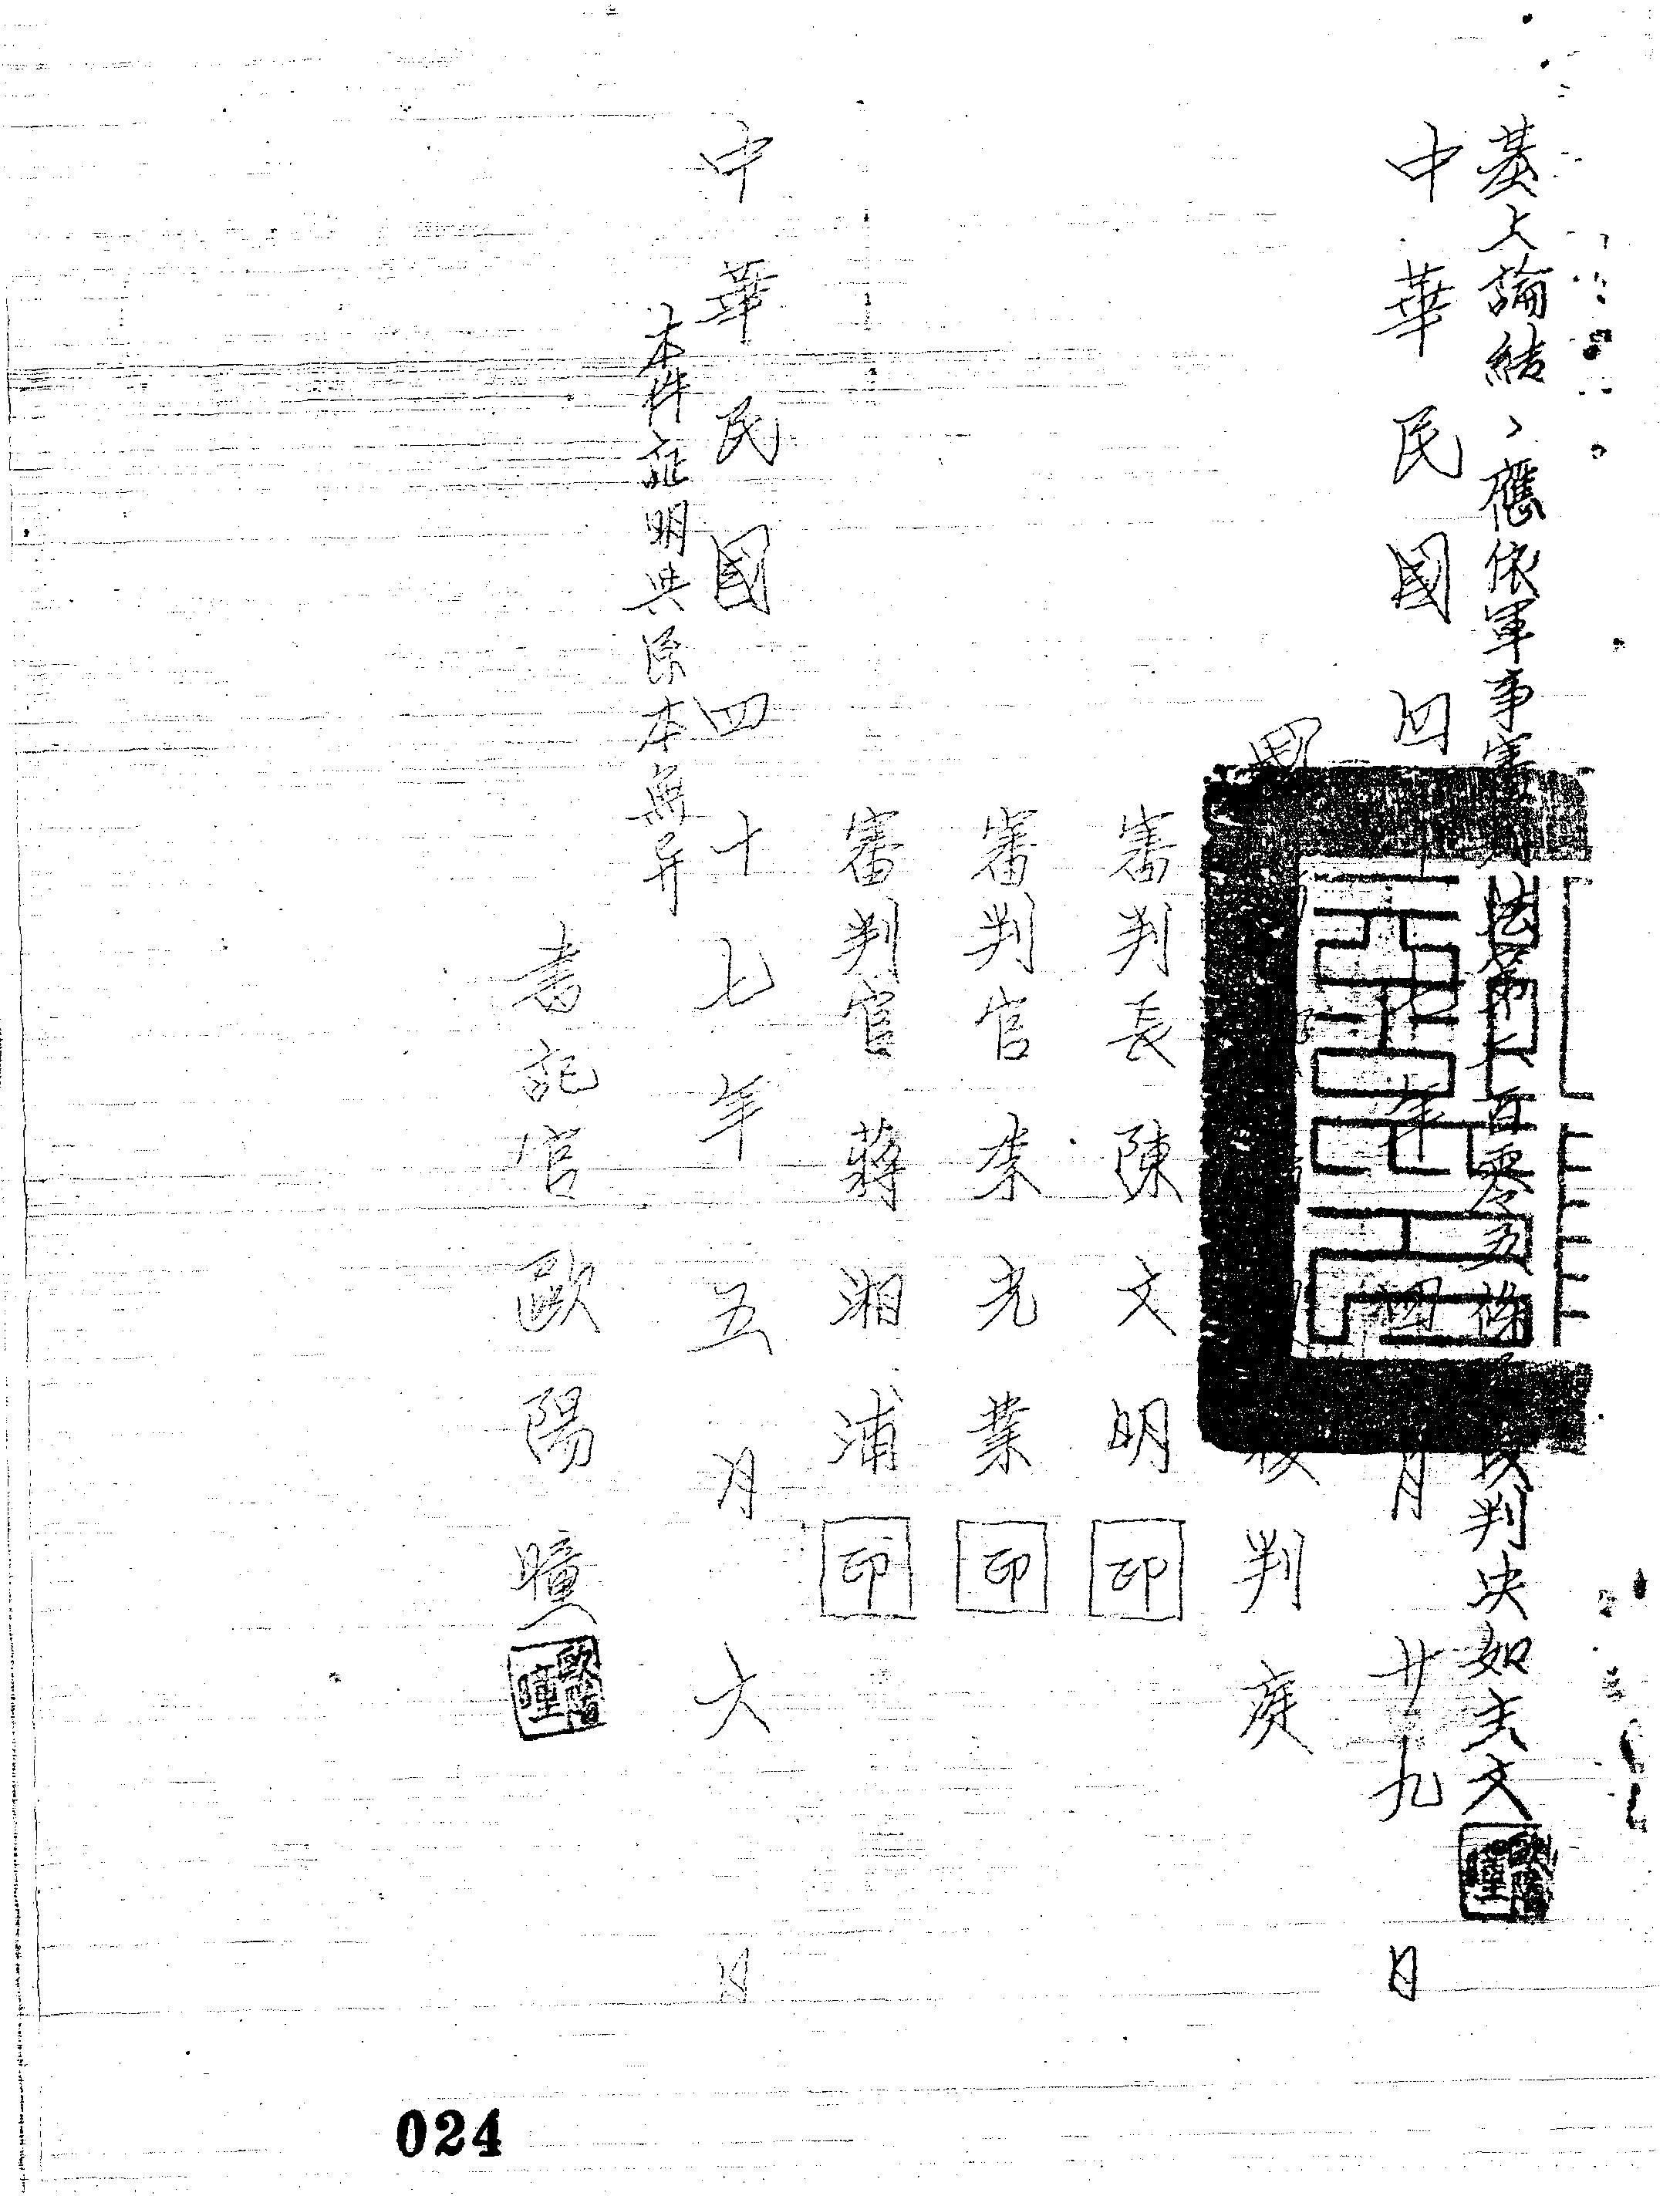 基上論結、應依軍事審判法第二百零五條　判決如主文
中華民國四十七年四月廿九日
國　判庭
審判長陳文明印
審判官李光業印
審判官蔣湘浦印
中華民國四十七年五月六日
本件証明與原本無异
書記官歐陽曈
024